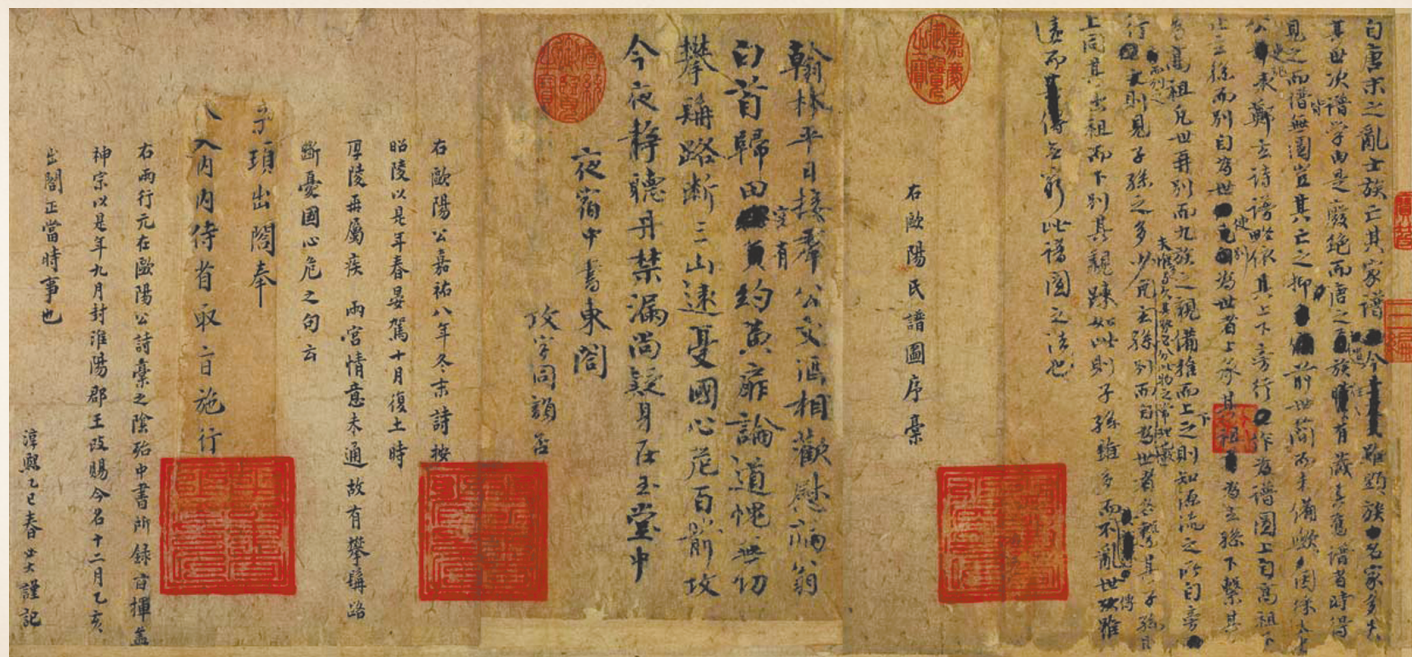 自唐末之亂士族亡其家譜今雖顯族名家多失
其世次譜学由是廢絕而唐之遺族往往有藏其舊譜者時得
見之而譜皆無圖豈其亡之抑前世簡而未備歟因採太史
公史記表鄭玄詩譜略依其上下旁行作為譜圖上自高祖下
止玄孫而別自為世使別為世者上承其祖為玄孫下繫其
孫為高祖凡世再別而九族之親備推而上之則知源流之所自旁
行而列之則見子孫之多少夫惟多與久其勢必分此物之常理也凡玄孫別而自為世者各繫其子孫則
上同其出祖而下別其親疎如此則子孫雖多而不亂世傳雖
遠而無窮此譜圖之法也
右歐陽氏譜圖序稾
嘉慶御覽之寶
翰林平日接羣公文酒相歡慰病翁
白首歸田空有約黃扉論道愧無功
攀髯路斷三山遠憂國心危百箭攻
今夜靜聽丹禁漏尚疑身在玉堂中
夜宿中書東閤
攻字同韻否
宣統御覽之寶
右歐陽公嘉祐八年冬末詩按
昭陵以是年春晏駕十月復土時
厚陵再屬疾 兩宮情意未通故有攀髯路
斷憂國心危之句云
頊出閤奉
入內內侍省取旨施行
右兩行元在歐陽公詩稾之陰殆中書所錄旨揮蓋
神宗以是年九月封淮陽郡王改賜今名十二月乙亥
出閤正當時事也
淳熙乙巳春 必大謹記